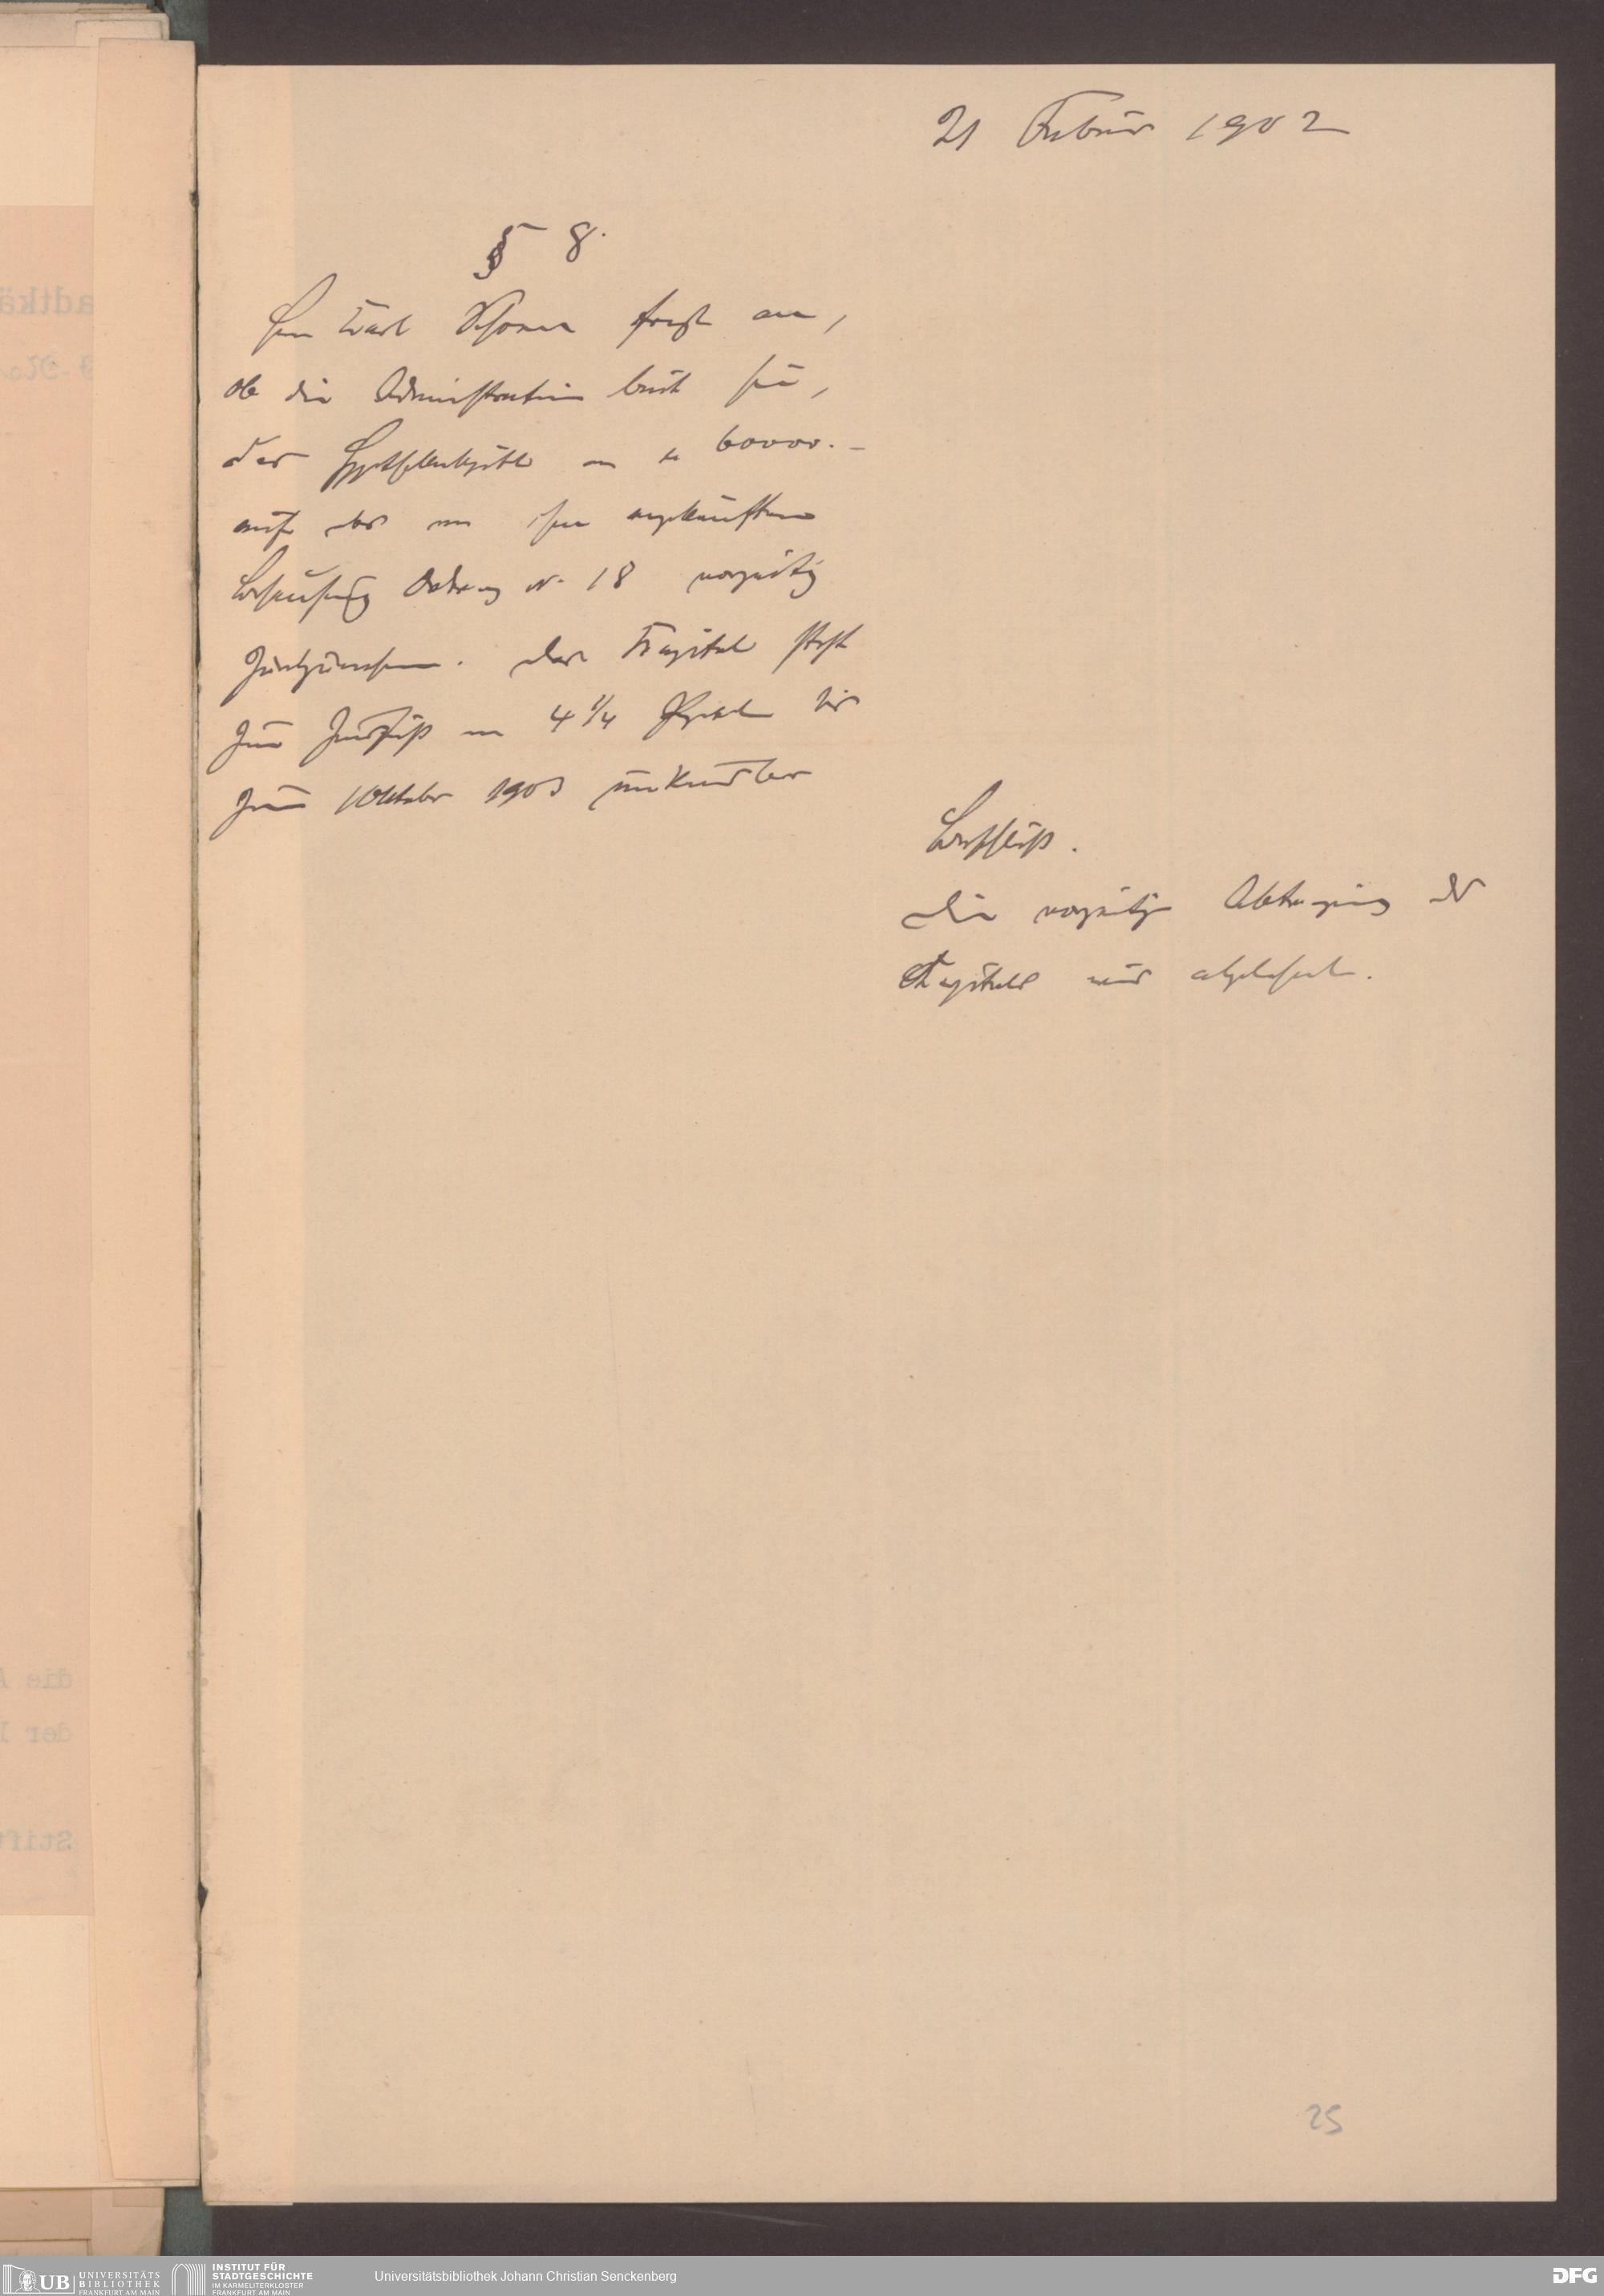 21 Februar 1902
§ 8.
Herr Karl frägt an,
ob die Administration bereit sei,
das Hypothekenkapital von M 60000.–
auf das von ihm angekauften
Behausung No 18 vorzeitig
zurückzunehmen. Das Kapital steht
zum Zinsfuß von 4 1/4 Prozent bis
zum 1 Oktober 1903 unkündbar
Beschluß.
Die vorzeitige Abtragung des
Kapitals wird abgelehnt.
25
adtkä
die A
der I
Stift
UB UNIVERSITÄTS BIBLIOTHEK FRANKFURT AM MAIN
INSTITUT FÜR STADTGESCHICHTE IM KARMELITERKLOSTER FRANKFURT AM MAIN
Universitätsbibliothek Johann Christian Senckenberg
DFG